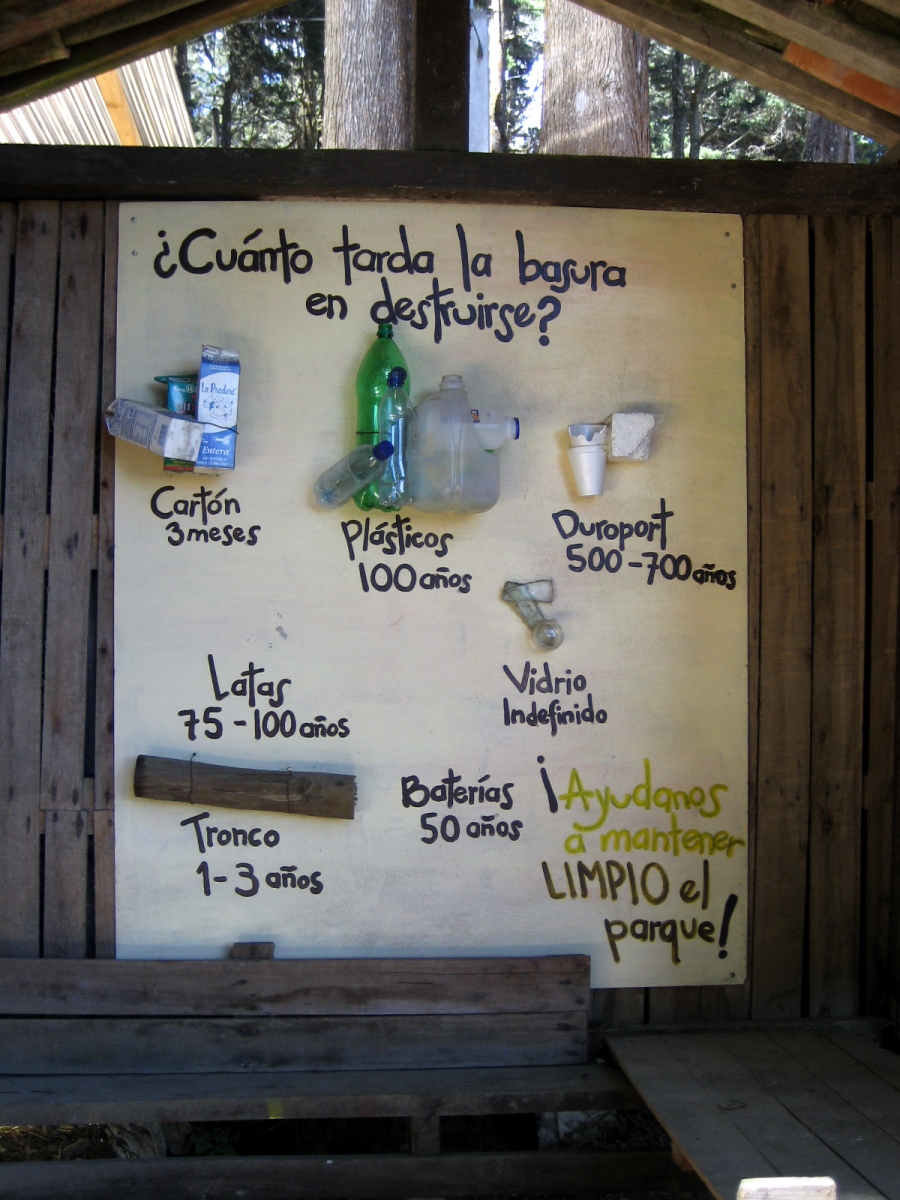 ¿Cuánto tarda la basura
en destruirse?
La Pradera
Entera
Cartón
3 meses
Plásticos
100 años
Duroport
500-700 años
Latas
75-100 años
Vidrio
Indefinido
Tronco
1-3 años
Baterías
50 años
¡Ayudanos
a mantener
LIMPIO el
parque!